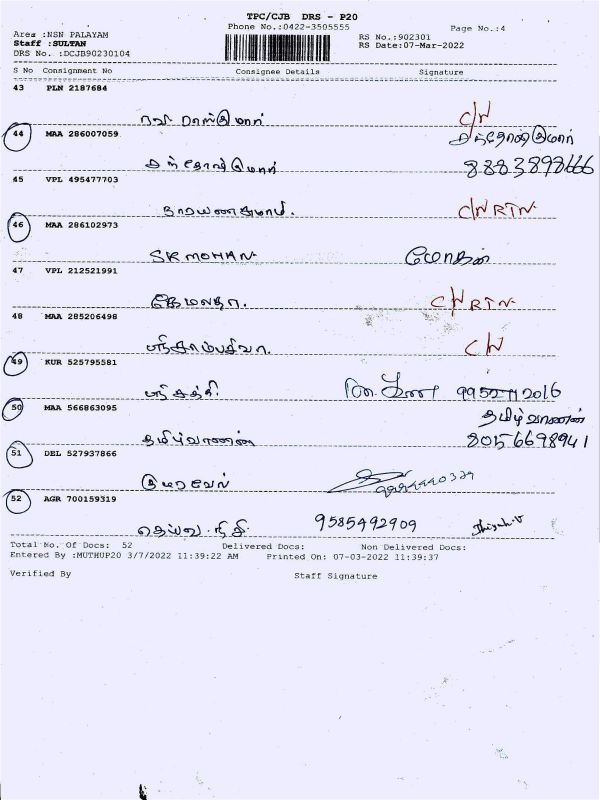 TPC/CJB DRS - P20
Phone No.:0422-3505555
Page No.:4
Area :NSN PALAYAM
RS No.:902301
Staff :SULTAN
RS Date:07-Mar-2022
DRS No. :DCJB90230104
S No Consignment No Consignee Details Signature
43 PLN 2187684
ராஜ்குமார் C/N
44 MAA 286007059
சந்தோஷ்குமார்
சந்தோஷ்குமார்
45 VPL 495477703
நாராயணசாமி. C/N RTN
46 MAA 286102973
SK MOHAN மோகன்
47 VPL 212521991
ஹேமலதா. C/N RTN
48 MAA 285206498
C/N
49 KUR 525795581
50 MAA 566863095
தமிழ்வாணன்
தமிழ்வாணன் 8056698941
51 DEL 527937866
குமரவேல்
52 AGR 700159319
9585492909
Total No. Of Docs: 52 Delivered Docs: Non Delivered Docs:
Entered By :MUTHUP20 3/7/2022 11:39:22 AM Printed On: 07-03-2022 11:39:37
Verified By Staff Signature